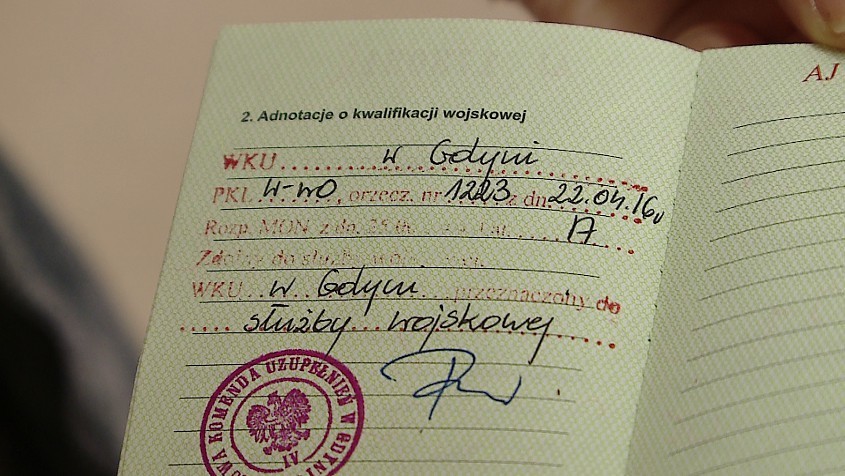 2. Adnotacje o kwalifikacji wojskowej
AJ
WKU w Gdyni
PKL W-wo, orzecz. nr 1223 z dn. 22.04.16
Rozp. MON z dn. kat. A
Zdolny do służby
WKU w Gdyni przeznaczony do
służby wojskowej
KOMENDA UZUPEŁNIEŃ W GDYNI
IV